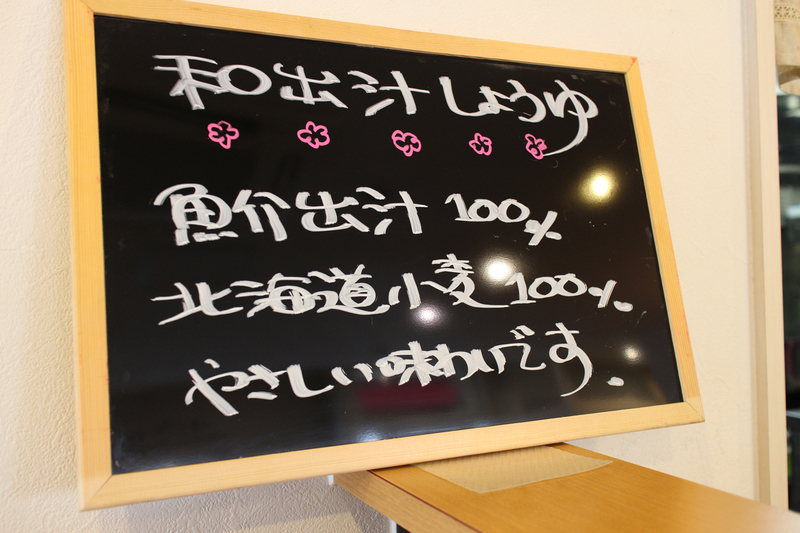 和出汁しょうゆ
魚介出汁100%
北海道小麦100%。
やさしい味わいです。